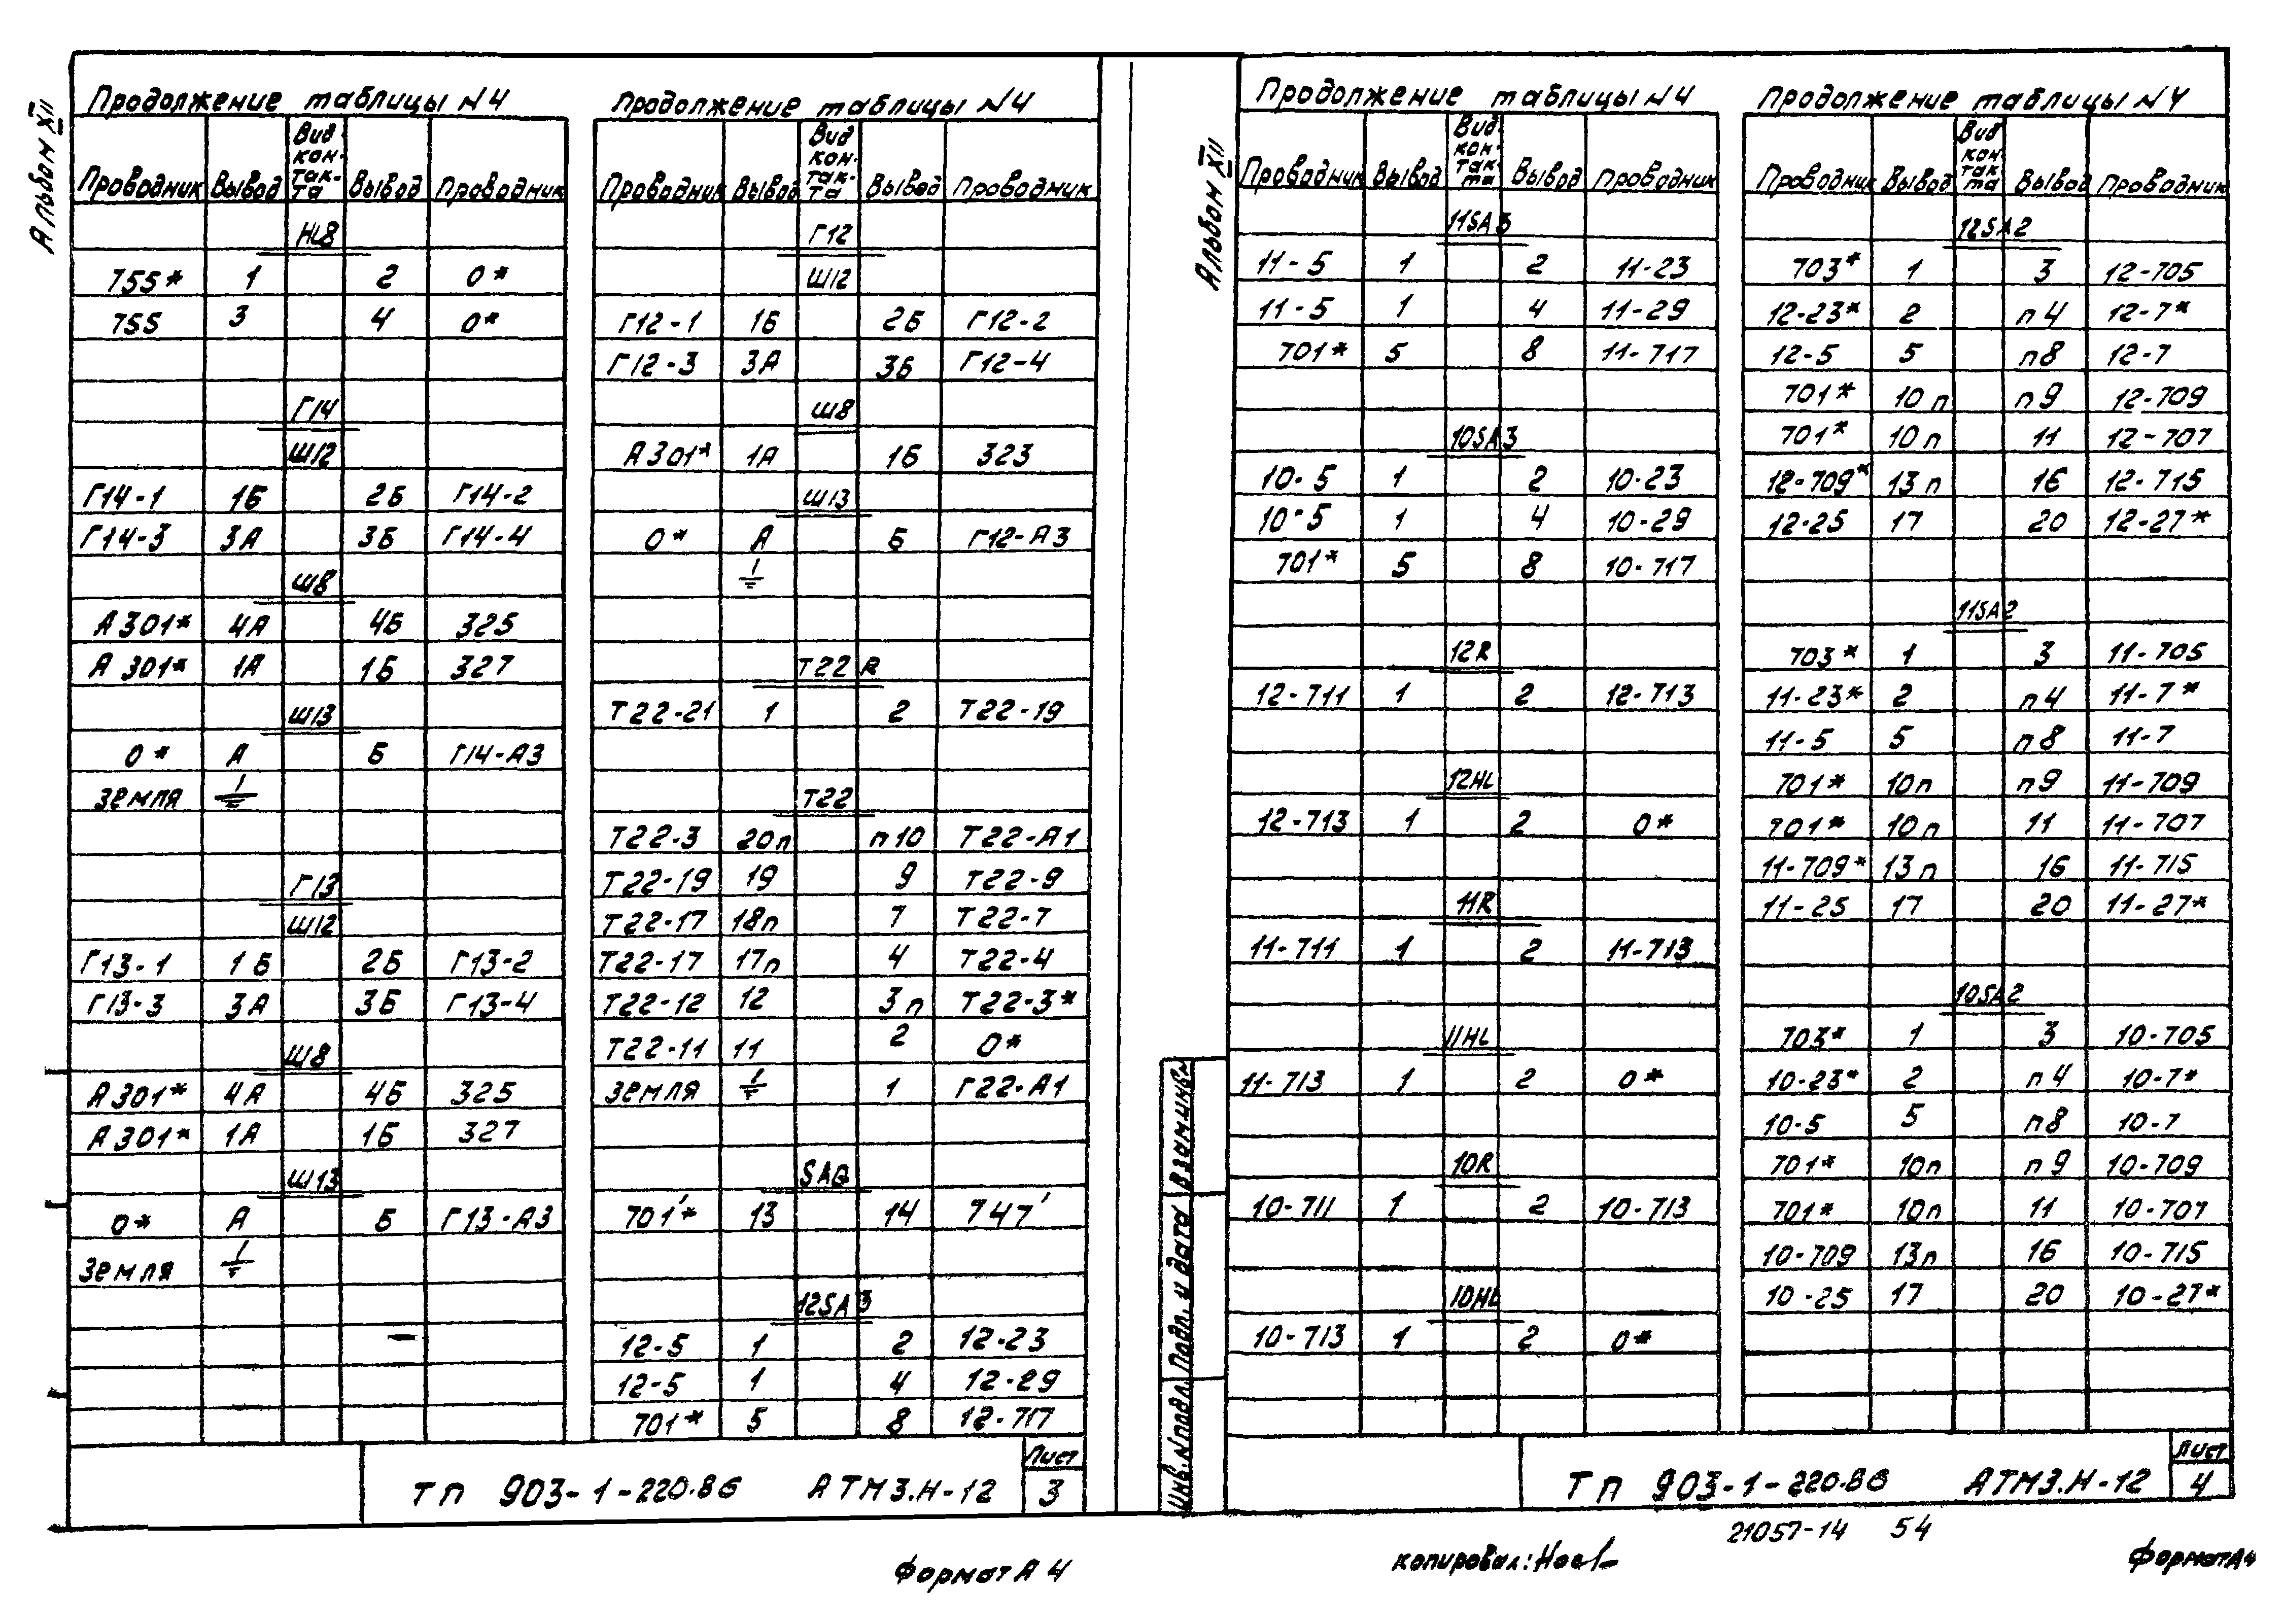 Альбом XII
Продолжение таблицы N4
Проводник Вывод Вид кон-так-та Вывод Проводник
HL8
755* 1 2 0*
755 3 4 0*
Г14
Ш12
Г14-1 1Б 2Б Г14-2
Г14-3 3А 3Б Г14-4
Ш8
А301* 4А 4Б 325
А301* 1А 1Б 327
Ш13
0* А Б Г14-А3
Земля
Г13
Ш12
Г13-1 1Б 2Б Г13-2
Г13-3 3А 3Б Г13-4
Ш8
А301* 4А 4Б 325
А301* 1А 1Б 327
Ш13
0* А Б Г13-А3
Земля
Продолжение таблицы N4
Проводник Вывод Вид кон-так-та Вывод Проводник
Г12
Ш12
Г12-1 1Б 2Б Г12-2
Г12-3 3А 3Б Г12-4
Ш8
А301* 1А 1Б 323
Ш13
0* А Б Г12-А3
Т22 R
Т22-21 1 2 Т22-19
Т22
Т22-3 20п п10 Т22-А1
Т22-19 19 9 Т22-9
Т22-17 18п 7 Т22-7
Т22-17 17п 4 Т22-4
Т22-12 12 3п Т22-3*
Т22-11 11 2 0*
Земля 1 Г22-А1
SAQ
701'* 13 14 747'
12SA3
12-5 1 2 12-23
12-5 1 4 12-29
701* 5 8 12-717
ТП 903-1-220.86 АТМ3.Н-12
Лист
3
Формат А4
Альбом XII
Продолжение таблицы N4
Проводник Вывод Вид кон-так-та Вывод Проводник
11SA3
11-5 1 2 11-23
11-5 1 4 11-29
701* 5 8 11-717
10SA3
10-5 1 2 10-23
10-5 1 4 10-29
701* 5 8 10-717
12R
12-711 1 2 12-713
12HL
12-713 1 2 0*
11R
11-711 1 2 11-713
11HL
11-713 1 2 0*
10R
10-711 1 2 10-713
10HL
10-713 1 2 0*
Продолжение таблицы N4
Проводник Вывод Вид кон-так-та Вывод Проводник
12SA2
703* 1 3 12-705
12-23* 2 п4 12-7*
12-5 5 п8 12-7
701* 10п п9 12-709
701* 10п 11 12-707
12-709* 13п 16 12-715
12-25 17 20 12-27*
11SA2
703* 1 3 11-705
11-23* 2 п4 11-7*
11-5 5 п8 11-7
701* 10п п9 11-709
701* 10п 11 11-707
11-709* 13п 16 11-715
11-25 17 20 11-27*
10SA2
703* 1 3 10-705
10-23* 2 п4 10-7*
10-5 5 п8 10-7
701* 10п п9 10-709
701* 10п 11 10-707
10-709 13п 16 10-715
10-25 17 20 10-27*
Инв. N подл. Подп. и дата Взам.инв.N
ТП 903-1-220.86 АТМ3.Н-12
Лист
4
21057-14 54
копировал:
Формат А4